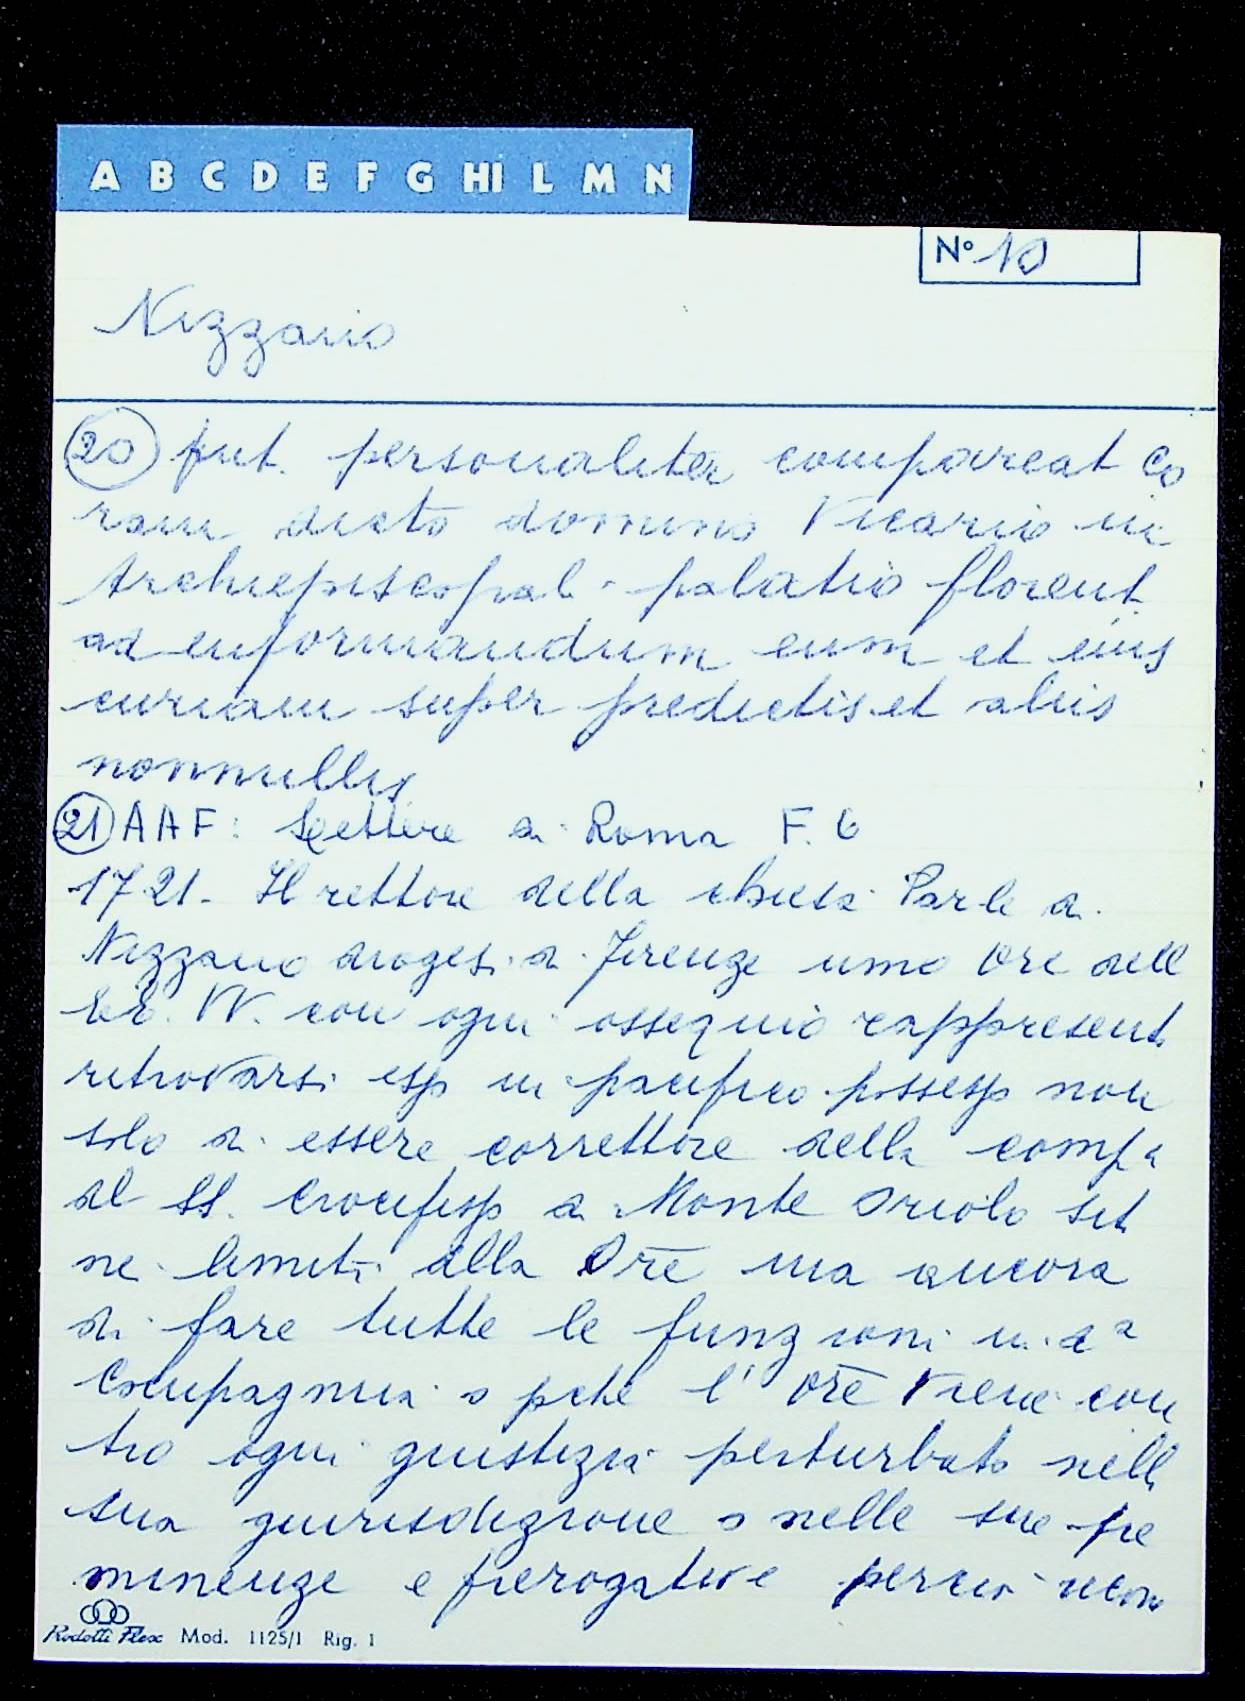 A B C D E F G HI L M N
Nº 10
Nizzano
20 fut. personaliter compareat co
ram dicto domino Vicario in
Archiepiscopali palatio florent.
ad informandum eum et eius
curiam super predictis et aliis
nonnullis
21 AAF: Lettere di Roma F. 6
1721 - Il rettore della chiesa Parle di
Nizzano dioges. di Firenze umo Ore dell
EE. VV. con ogni ossequio rappresent.
ritrovarsi esp in pacifico possesp non
solo di essere correttore della compa
del SS. Crocifisp a Monte Oriolo sit.
ne limiti della Ore ma ancora
di fare tutte le funzioni in da
Compagnia e pche l'Ore viene con
tro ogni giustizia perturbato nell
sua giurisdizione e nelle sue pre
minenze e prerogative perciò
Rodolti Flex Mod. 1125/1 Rig. 1